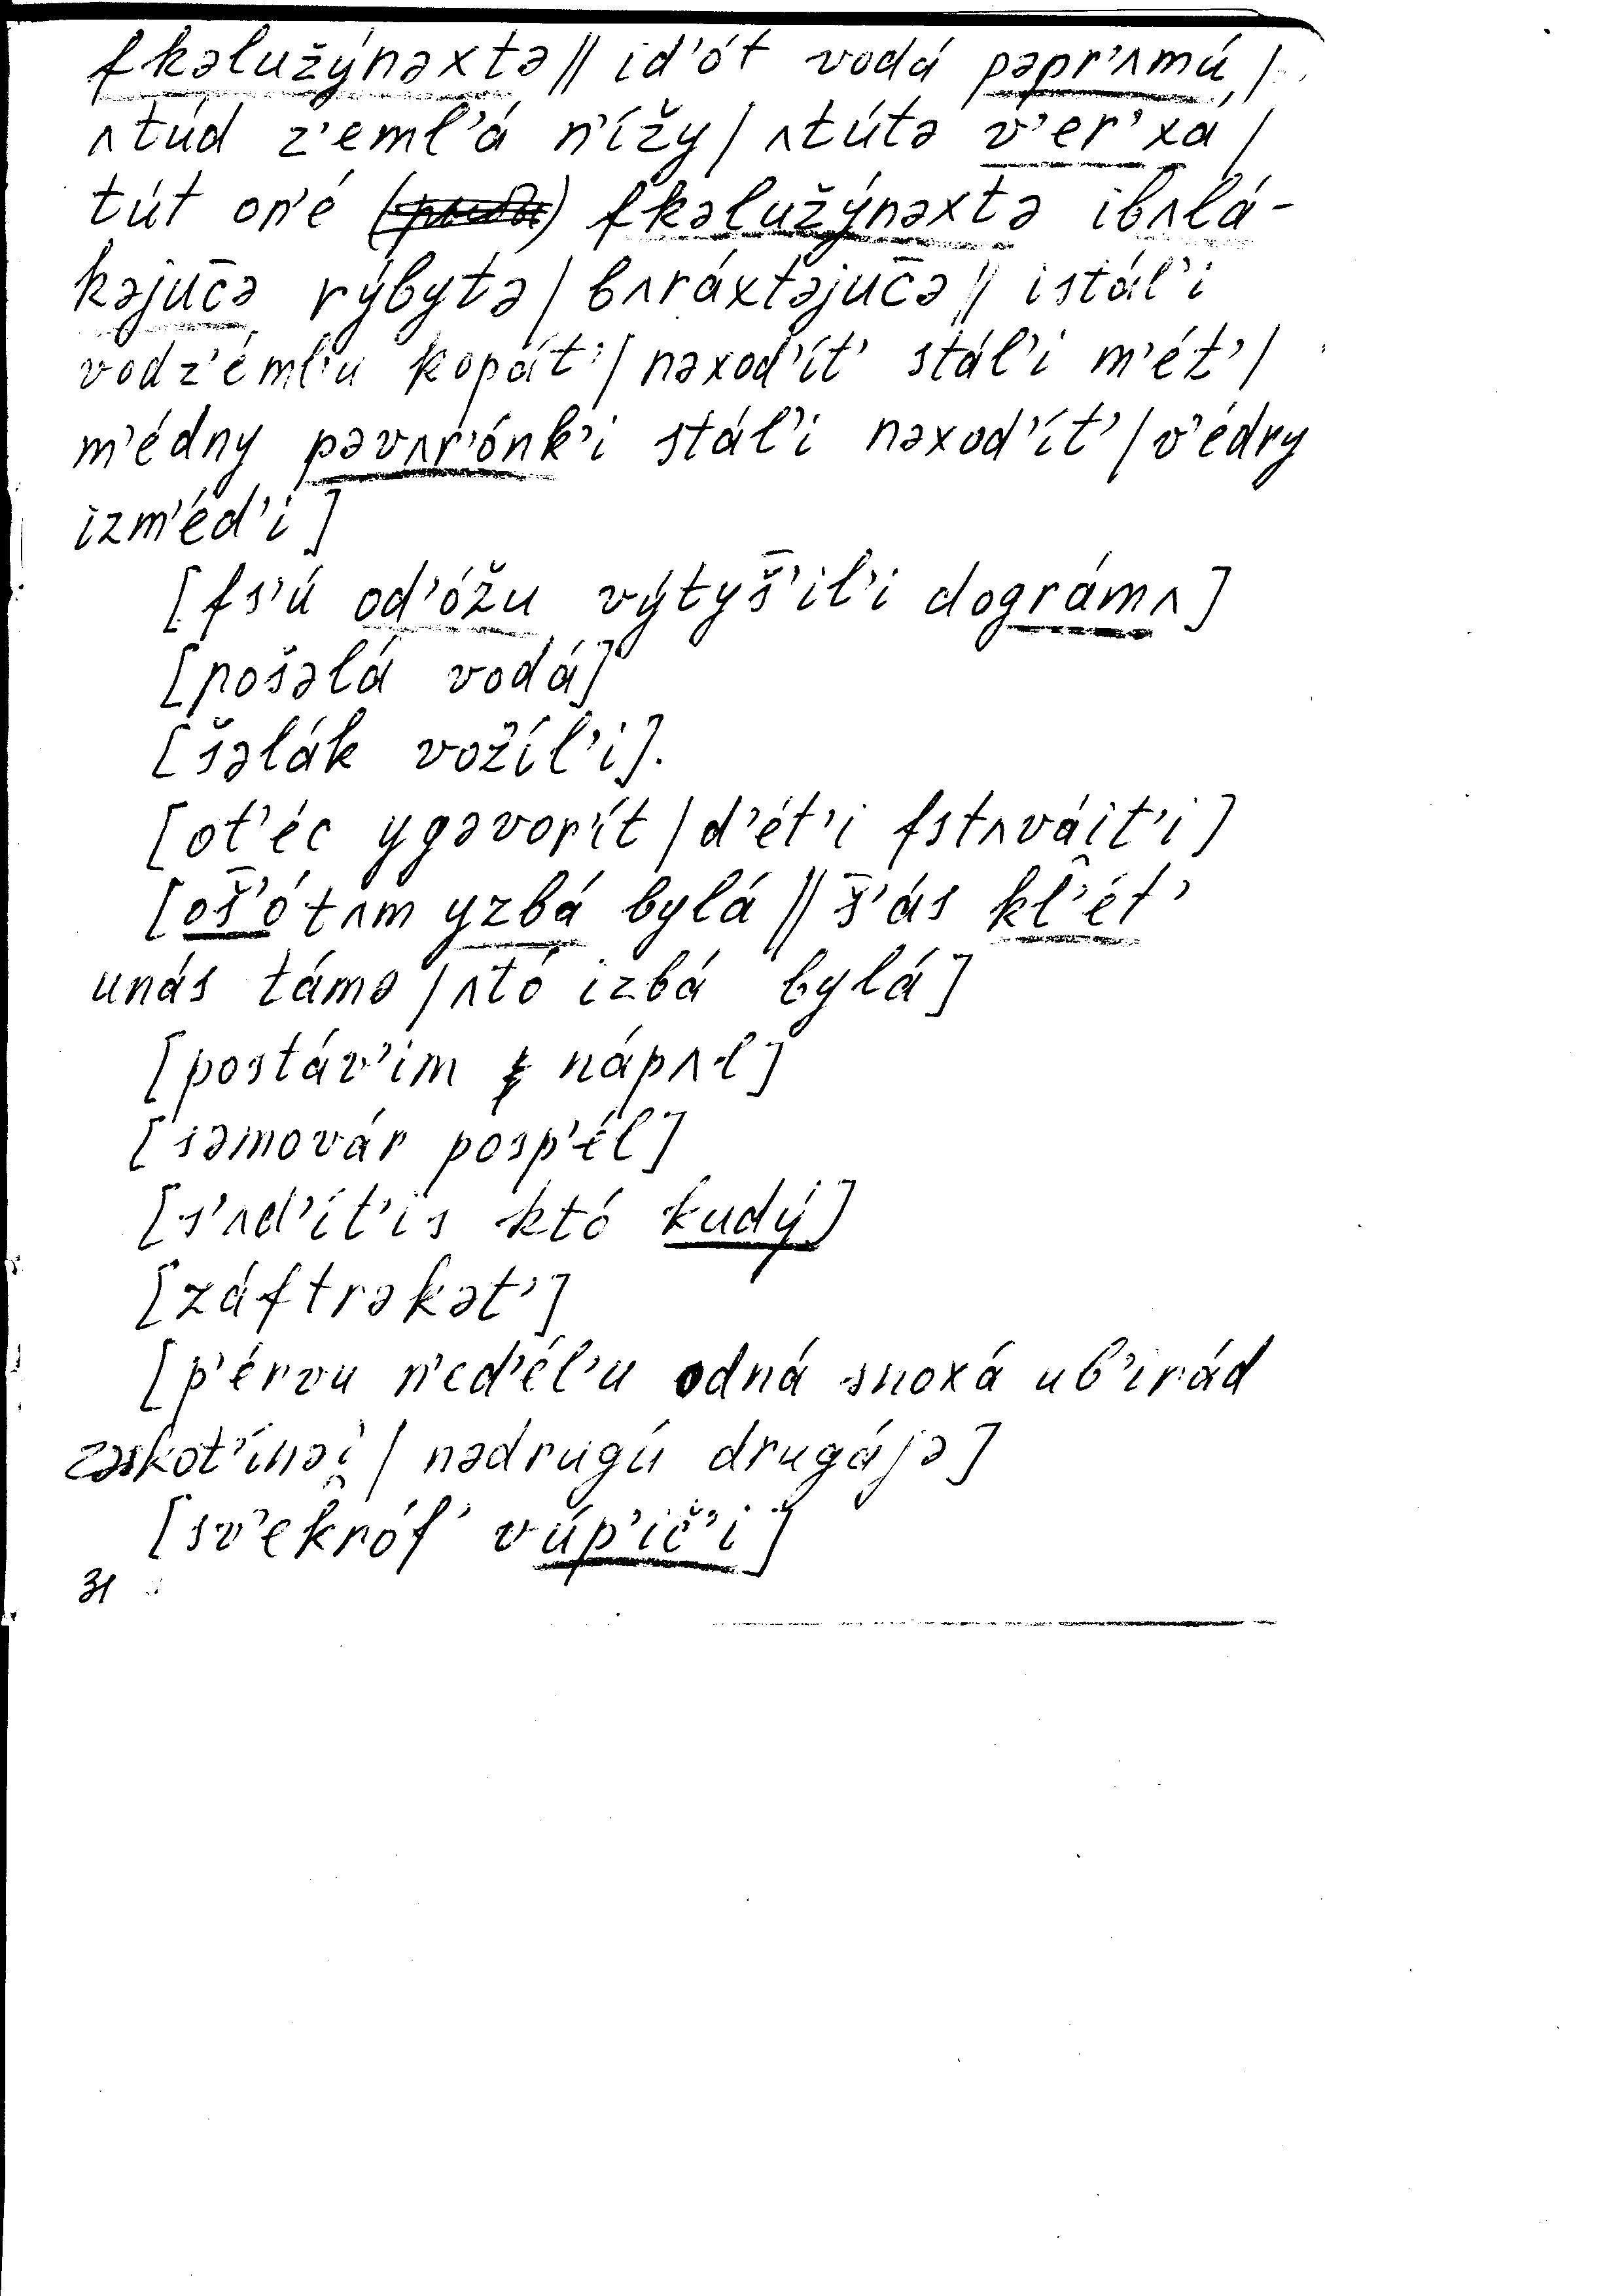 fkəlužýnəxtə || id’ót vodá pəpr’ʌmú |
ʌtúd z’eml’á n’ížy | ʌtútə v’er’xá |
tút on’é fkəlužýnəxtə ibʌlá-
kəjuc̄ə rýbytə | bʌráxtəjuc̄ə || istál’i
vodz’éml’u kopát’ | nəxod’ít’ stál’i m’ét’ |
m’édny pəvʌr’ónk’i stál’i nəxod’ít’ | v’édry
izm’éd’i]
[fs’ú od’óžu výtyš̄’il’i dográmʌ]
[pošəlá vodá]
[šəlák vožíl’i].
[ot’éc ygəvor’ít | d’ét’i fstʌváit’i]
[oš̄’ó tʌm yzbá bylá || š̄’ás kl’ét’
unás támə | ʌtó izbá bylá]
[postáv’im nápʌl]
[səmovár posp’él]
[s’ʌd’ít’is któ kudý]
[záftrəkət’]
[p’érvu n’ed’él’u odná snoxá ub’irád
zəskot’ínəi̯ | nədrugú drugájə]
[sv’ekróf’ vúp’ič’i]
31